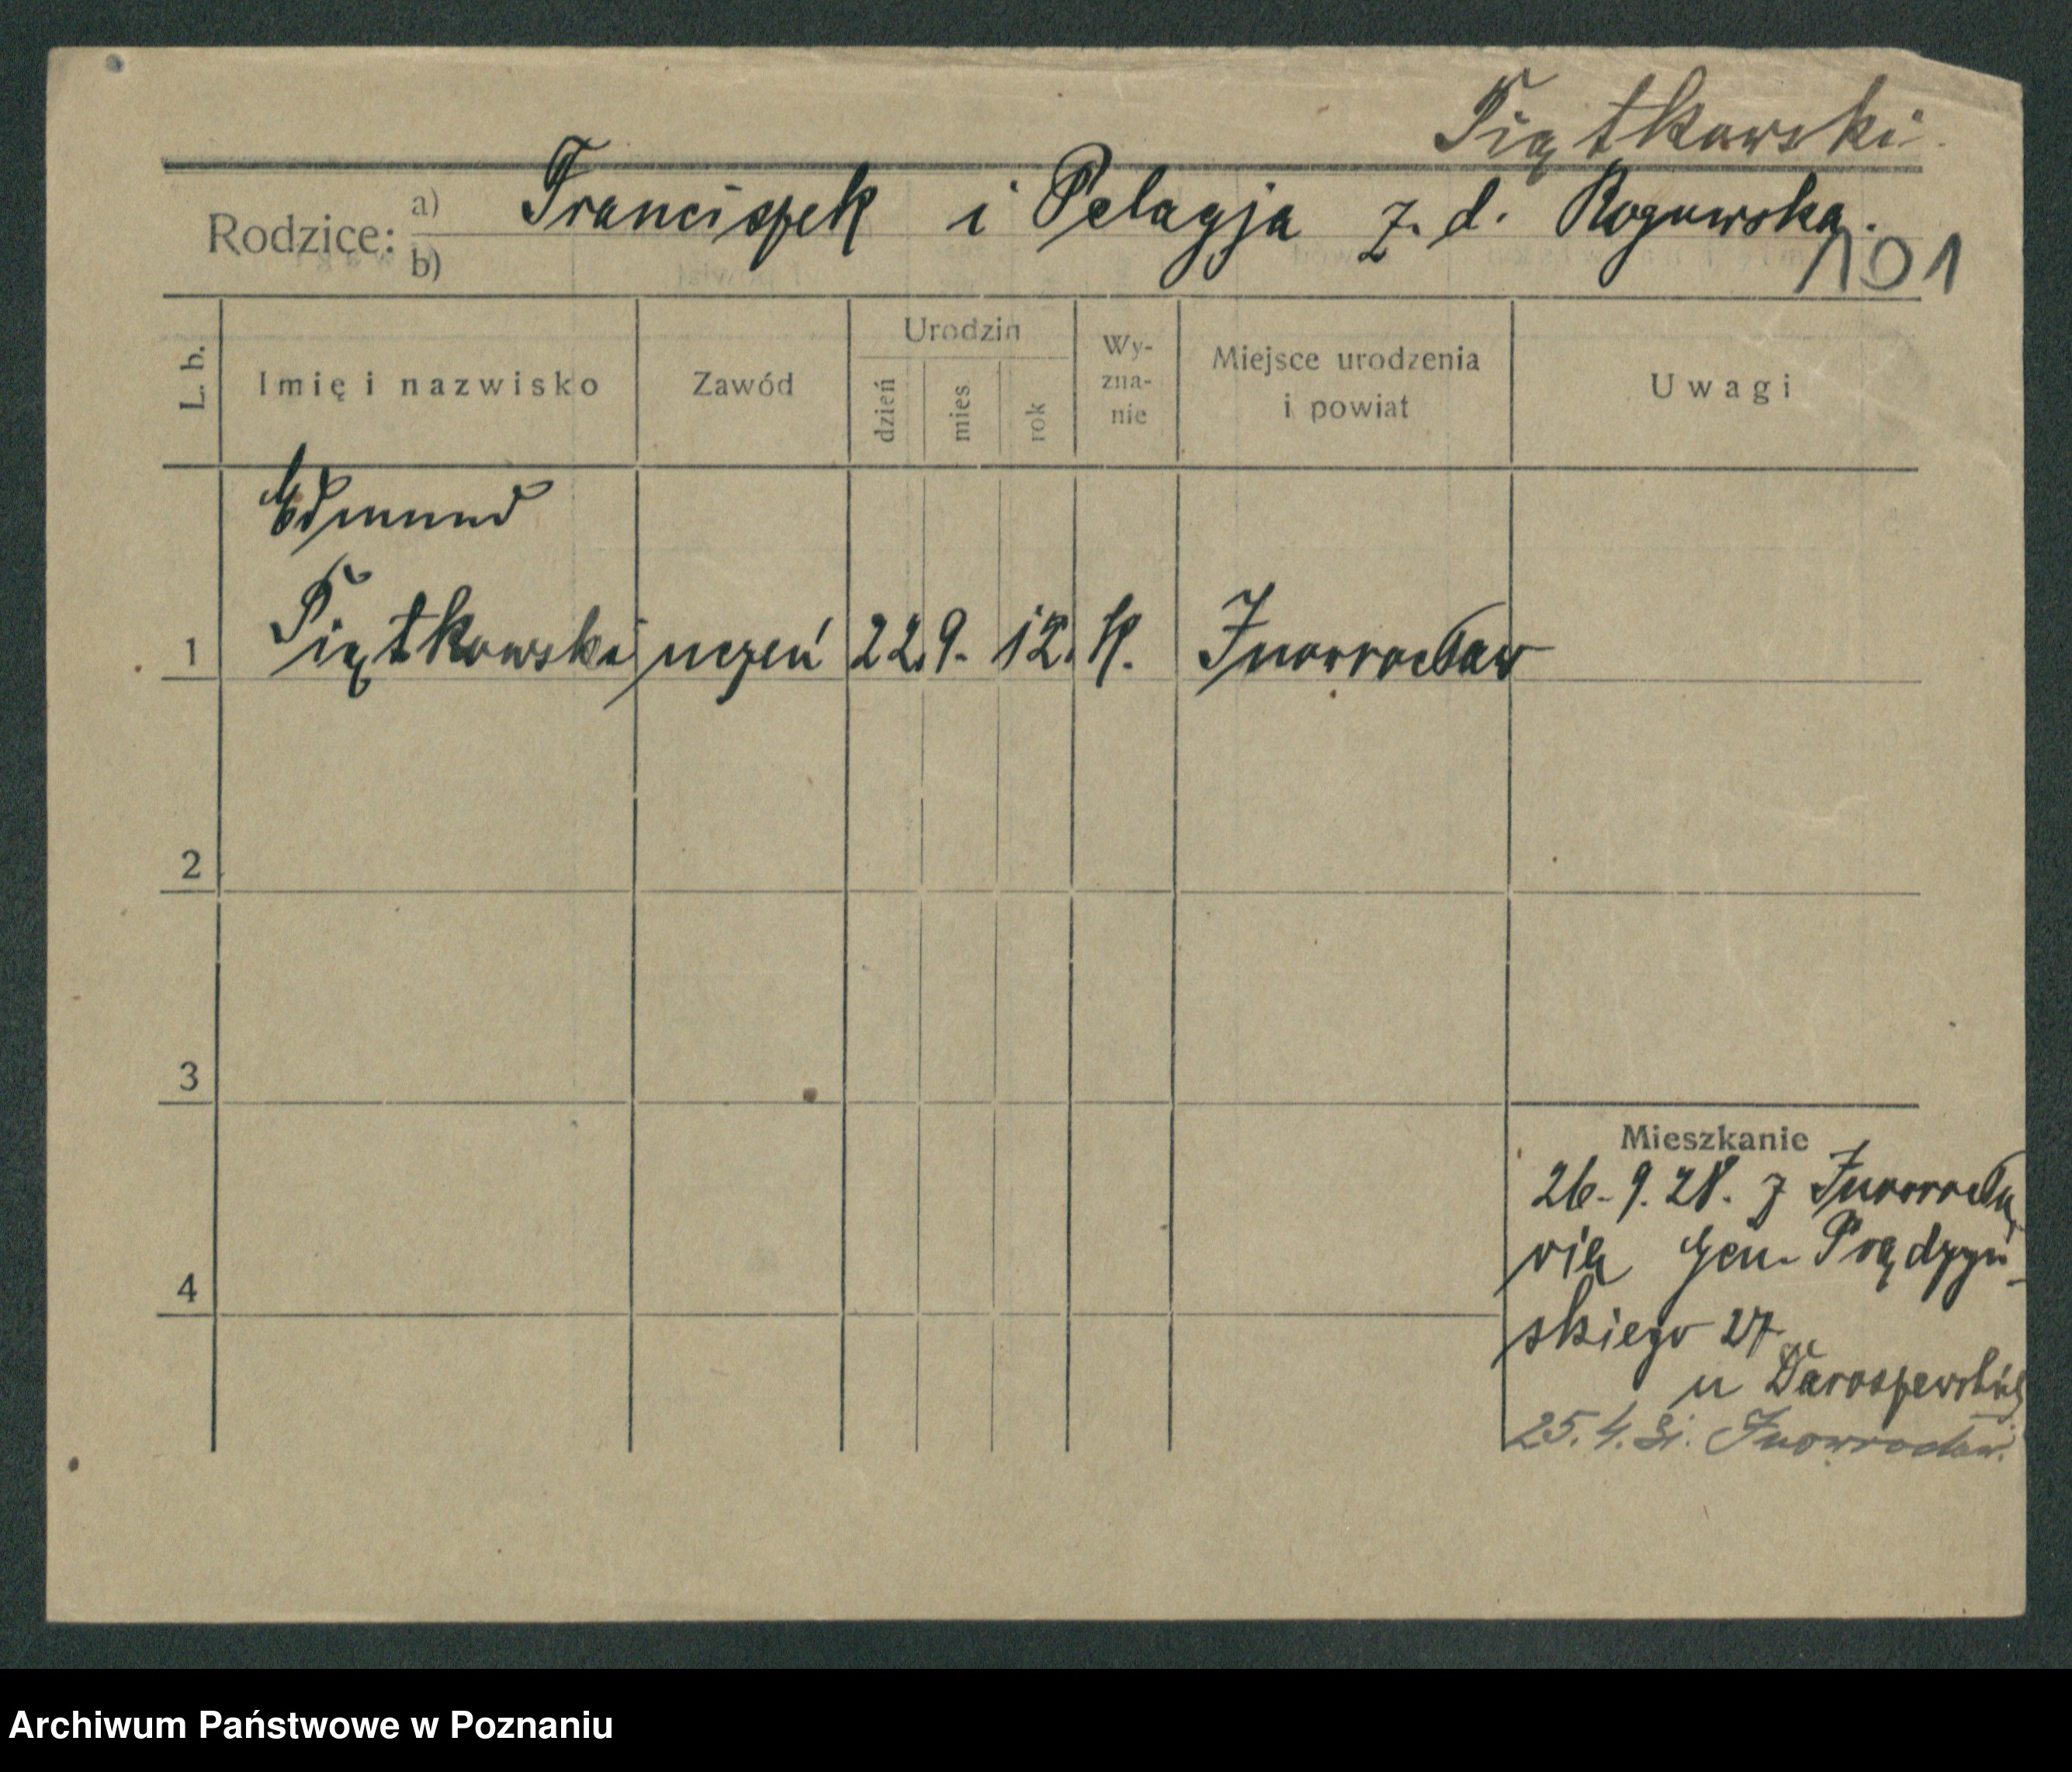 Piątkowski
Rodzice: a) Franciszek i Pelagja z. d. Rogowska.
b)
101
L. b. Imię i nazwisko Zawód Urodzin dzień mies rok Wy-zna-nie Miejsce urodzenia i powiat Uwagi
Edmund
1 Piątkowski uczeń 22. 9. 12. K. Inowrocław
2
3
Mieszkanie
26.9.28. z Inowrocła
wia Gen. Prądzyń-
4
skiego 27
u
25.4.31. Inowrocław.
Archiwum Państwowe w Poznaniu